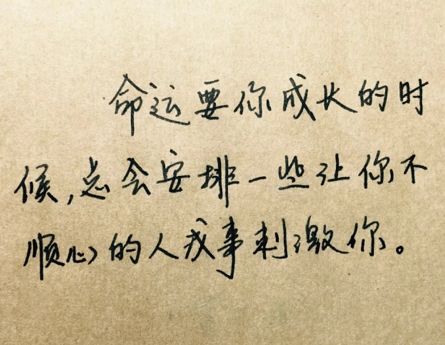 命运要你成长的时
候,总会安排一些让你不
顺心的人或事刺激你。